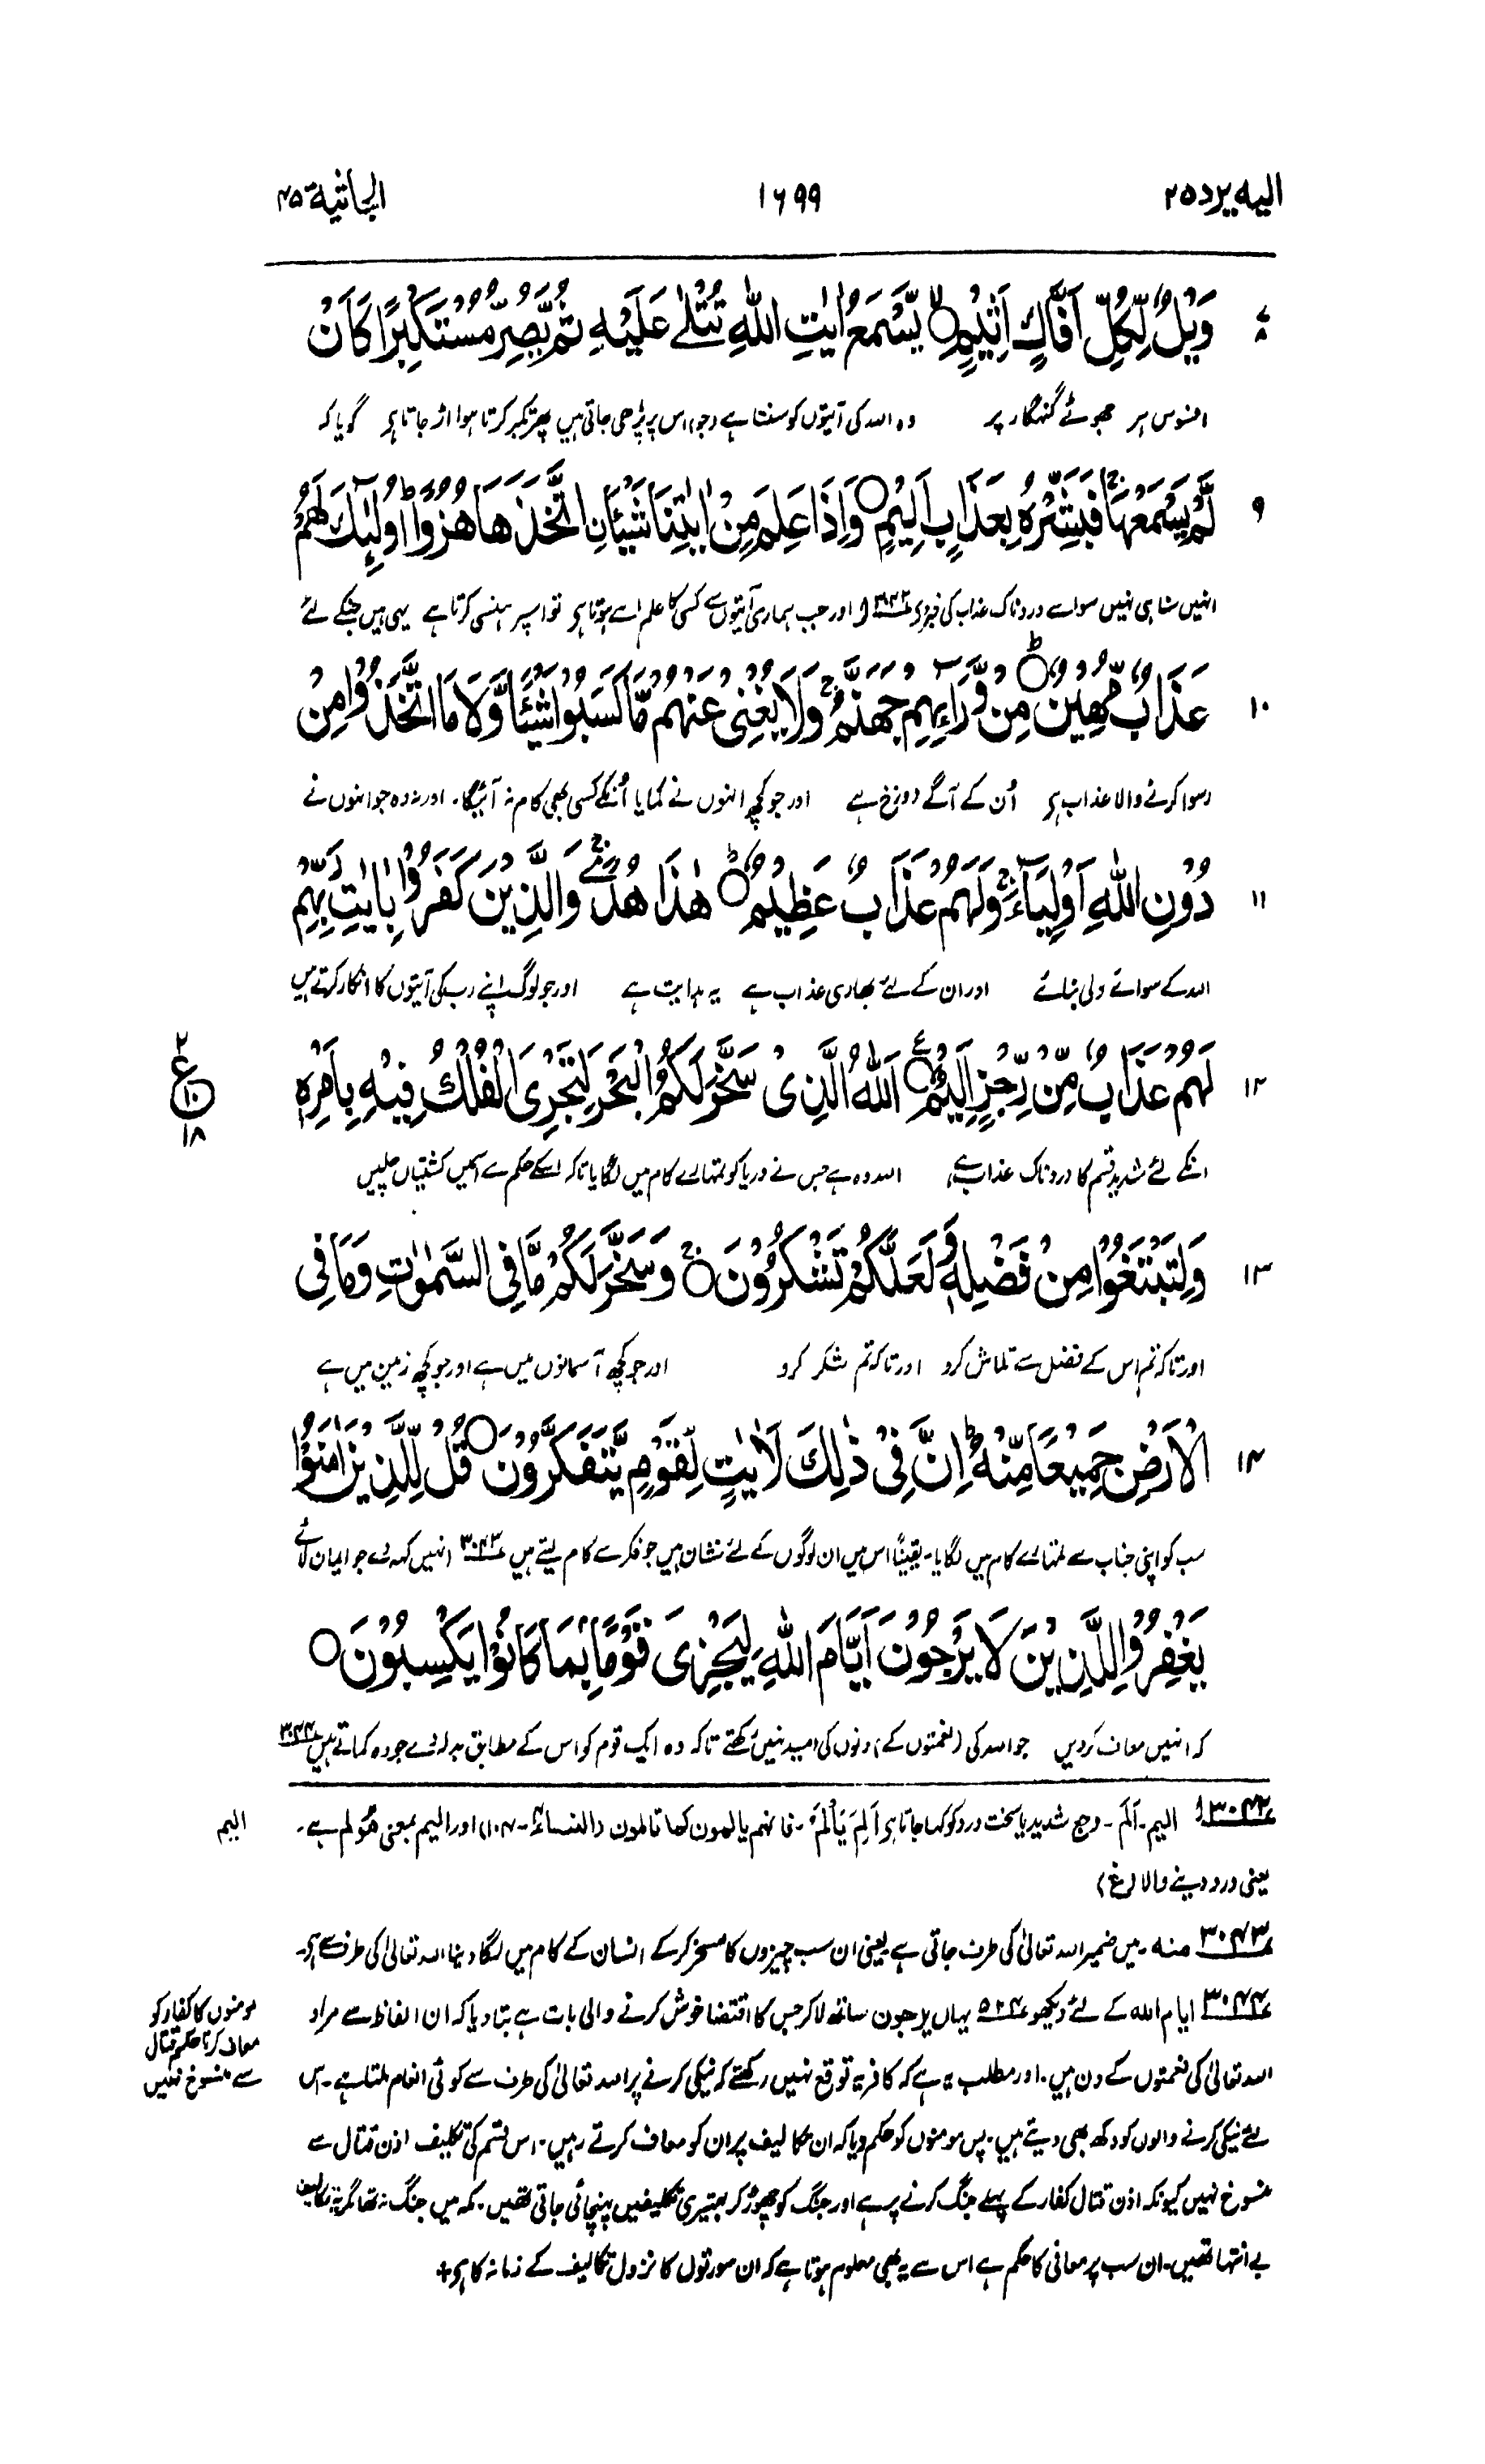 الیه یرد ۲۵
۱۶۹۹
الجاثیة ۴۵
۷ ۸ وَيْلٌ لِّكُلِّ اَفَّاكٍ اَثِيْمٍ ۙ يَّسْمَعُ اٰيٰتِ اللّٰهِ تُتْلٰى عَلَيْهِ ثُمَّ يُصِرُّ مُسْتَكْبِرًا كَاَنْ
افسوس ہر جھوٹے گنہگار پر وہ اللہ کی آیتوں کو سنتا ہے (جو) اس پر پڑھی جاتی ہیں پھر تکبر کرتا ہوا اڑ جاتا ہے گویا کہ
۹ لَّمْ يَسْمَعْهَا ۚ فَبَشِّرْهُ بِعَذَابٍ اَلِيْمٍ ○ وَاِذَا عَلِمَ مِنْ اٰيٰتِنَا شَيْئَاِۨ اتَّخَذَهَا هُزُوًا ؕ اُولٰٓئِكَ لَهُمْ
انہیں سنا ہی نہیں سو اسے دردناک عذاب کی خبر دو ۳۰۴۲ اور جب ہماری آیتوں سے کسی کا علم اسے ہوتا ہے تو اسپر ہنسی کرتا ہے یہی ہیں جنکے لئے
۱۰ عَذَابٌ مُّهِيْنٌ ؕ مِنْ وَّرَآئِهِمْ جَهَنَّمُ ۚ وَلَا يُغْنِيْ عَنْهُمْ مَّا كَسَبُوْا شَيْئًا وَّلَا مَا اتَّخَذُوْا مِنْ
رسوا کرنے والا عذاب ہے اُن کے آگے دوزخ ہے اور جو کچھ انہوں نے کمایا اُنکے کسی بھی کام نہ آئیگا۔ اور نہ وہ جو انہوں نے
۱۱ دُوْنِ اللّٰهِ اَوْلِيَآءَ ۚ وَلَهُمْ عَذَابٌ عَظِيْمٌ ؕ هٰذَا هُدًى ۚ وَالَّذِيْنَ كَفَرُوْا بِاٰيٰتِ رَبِّهِمْ
اللہ کے سوائے ولی بنائے اور ان کے لئے بھاری عذاب ہے یہ ہدایت ہے اور جو لوگ اپنے رب کی آیتوں کا انکار کرتے ہیں
۱۲ لَهُمْ عَذَابٌ مِّنْ رِّجْزٍ اَلِيْمٌ ۧ اَللّٰهُ الَّذِيْ سَخَّرَ لَكُمُ الْبَحْرَ لِتَجْرِيَ الْفُلْكُ فِيْهِ بِاَمْرِهٖ
۲ ع ۱۰ ۱۸
انکے لئے شدید قسم کا دردناک عذاب ہے اللہ وہ ہے جس نے دریا کو تمہارے کام میں لگایا تاکہ اسکے حکم سے اسمیں کشتیاں چلیں
۱۳ وَلِتَبْتَغُوْا مِنْ فَضْلِهٖ وَلَعَلَّكُمْ تَشْكُرُوْنَ ۚ وَسَخَّرَ لَكُمْ مَّا فِي السَّمٰوٰتِ وَمَا فِي
اور تاکہ تم اس کے فضل سے تلاش کرو اور تاکہ تم شکر کرو اور جو کچھ آسمانوں میں ہے اور جو کچھ زمین میں ہے
۱۴ الْاَرْضِ جَمِيْعًا مِّنْهُ ؕ اِنَّ فِيْ ذٰلِكَ لَاٰيٰتٍ لِّقَوْمٍ يَّتَفَكَّرُوْنَ ○ قُلْ لِّلَّذِيْنَ اٰمَنُوْا
سب کو اپنی جناب سے تمہارے کام میں لگایا۔ یقیناً اس میں ان لوگوں کے لئے نشان ہیں جو فکر سے کام لیتے ہیں ۳۰۴۳ انہیں کہہ دے جو ایمان لائے
يَغْفِرُوْا لِلَّذِيْنَ لَا يَرْجُوْنَ اَيَّامَ اللّٰهِ لِيَجْزِيَ قَوْمًۢا بِمَا كَانُوْا يَكْسِبُوْنَ ○
کہ انہیں معاف کر دیں جو اللہ کی (نعمتوں کے) دنوں کی امید نہیں رکھتے تاکہ وہ ایک قوم کو اس کے مطابق بدلہ دے جو وہ کماتے ہیں ۳۰۴۴
۳۰۴۲ الیم۔ اَلَم۔ وجع شدید یا سخت درد کو کہا جاتا ہے اَلِمَ یَأْلَمُ۔ فانہم یالمون کما تالمون (النساء ۴۔ ۱۰۴) اور الیم بمعنی مُؤلم ہے۔
الیم
یعنی درد دینے والا (غ)
۳۰۴۳ منه۔ میں ضمیر اللہ تعالیٰ کی طرف جاتی ہے یعنی ان سب چیزوں کا مسخر کرکے انسان کے کام میں لگا دینا اللہ تعالیٰ کی طرف سے ہے۔
۳۰۴۴ ایام اللہ کے لئے دیکھو ۵۲۴ یہاں یرجون ساتھ لا کر جس کا اقتضا خوش کرنے والی بات ہے بتا دیا کہ ان الفاظ سے مراد
مومنوں کا کفار کو
معاف کرنا حکم قتال
سے منسوخ نہیں
اللہ تعالیٰ کی نعمتوں کے دن ہیں۔ اور مطلب یہ ہے کہ کافر یہ توقع نہیں رکھتے کہ نیکی کرنے پر اللہ تعالیٰ کی طرف سے کوئی انعام ملتا ہے۔ اس
لئے نیکی کرنے والوں کو دکھ بھی دیتے ہیں۔ پس مومنوں کو حکم دیا کہ ان تکالیف پر ان کو معاف کرتے رہیں۔ اس قسم کی تکلیف اذن قتال سے
منسوخ نہیں کیونکہ اذن قتال کفار کے پہلے جنگ کرنے پر ہے اور جنگ کو چھوڑ کر بہتیری تکلیفیں پہنچائی جاتی تھیں۔ مکہ میں جنگ نہ تھا مگر یہ تکالیف
بے انتہا تھیں۔ ان سب پر معافی کا حکم ہے اس سے یہ بھی معلوم ہوتا ہے کہ ان سورتوں کا نزول تکالیف کے زمانہ کا ہے +